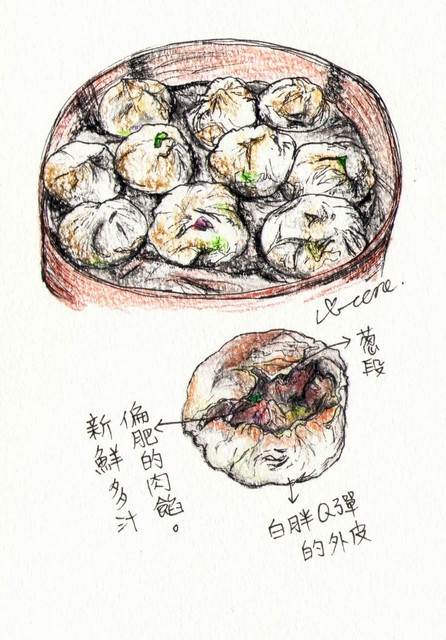 蔥段
偏肥的肉餡。
新鮮多汁
白胖Q彈
的外皮